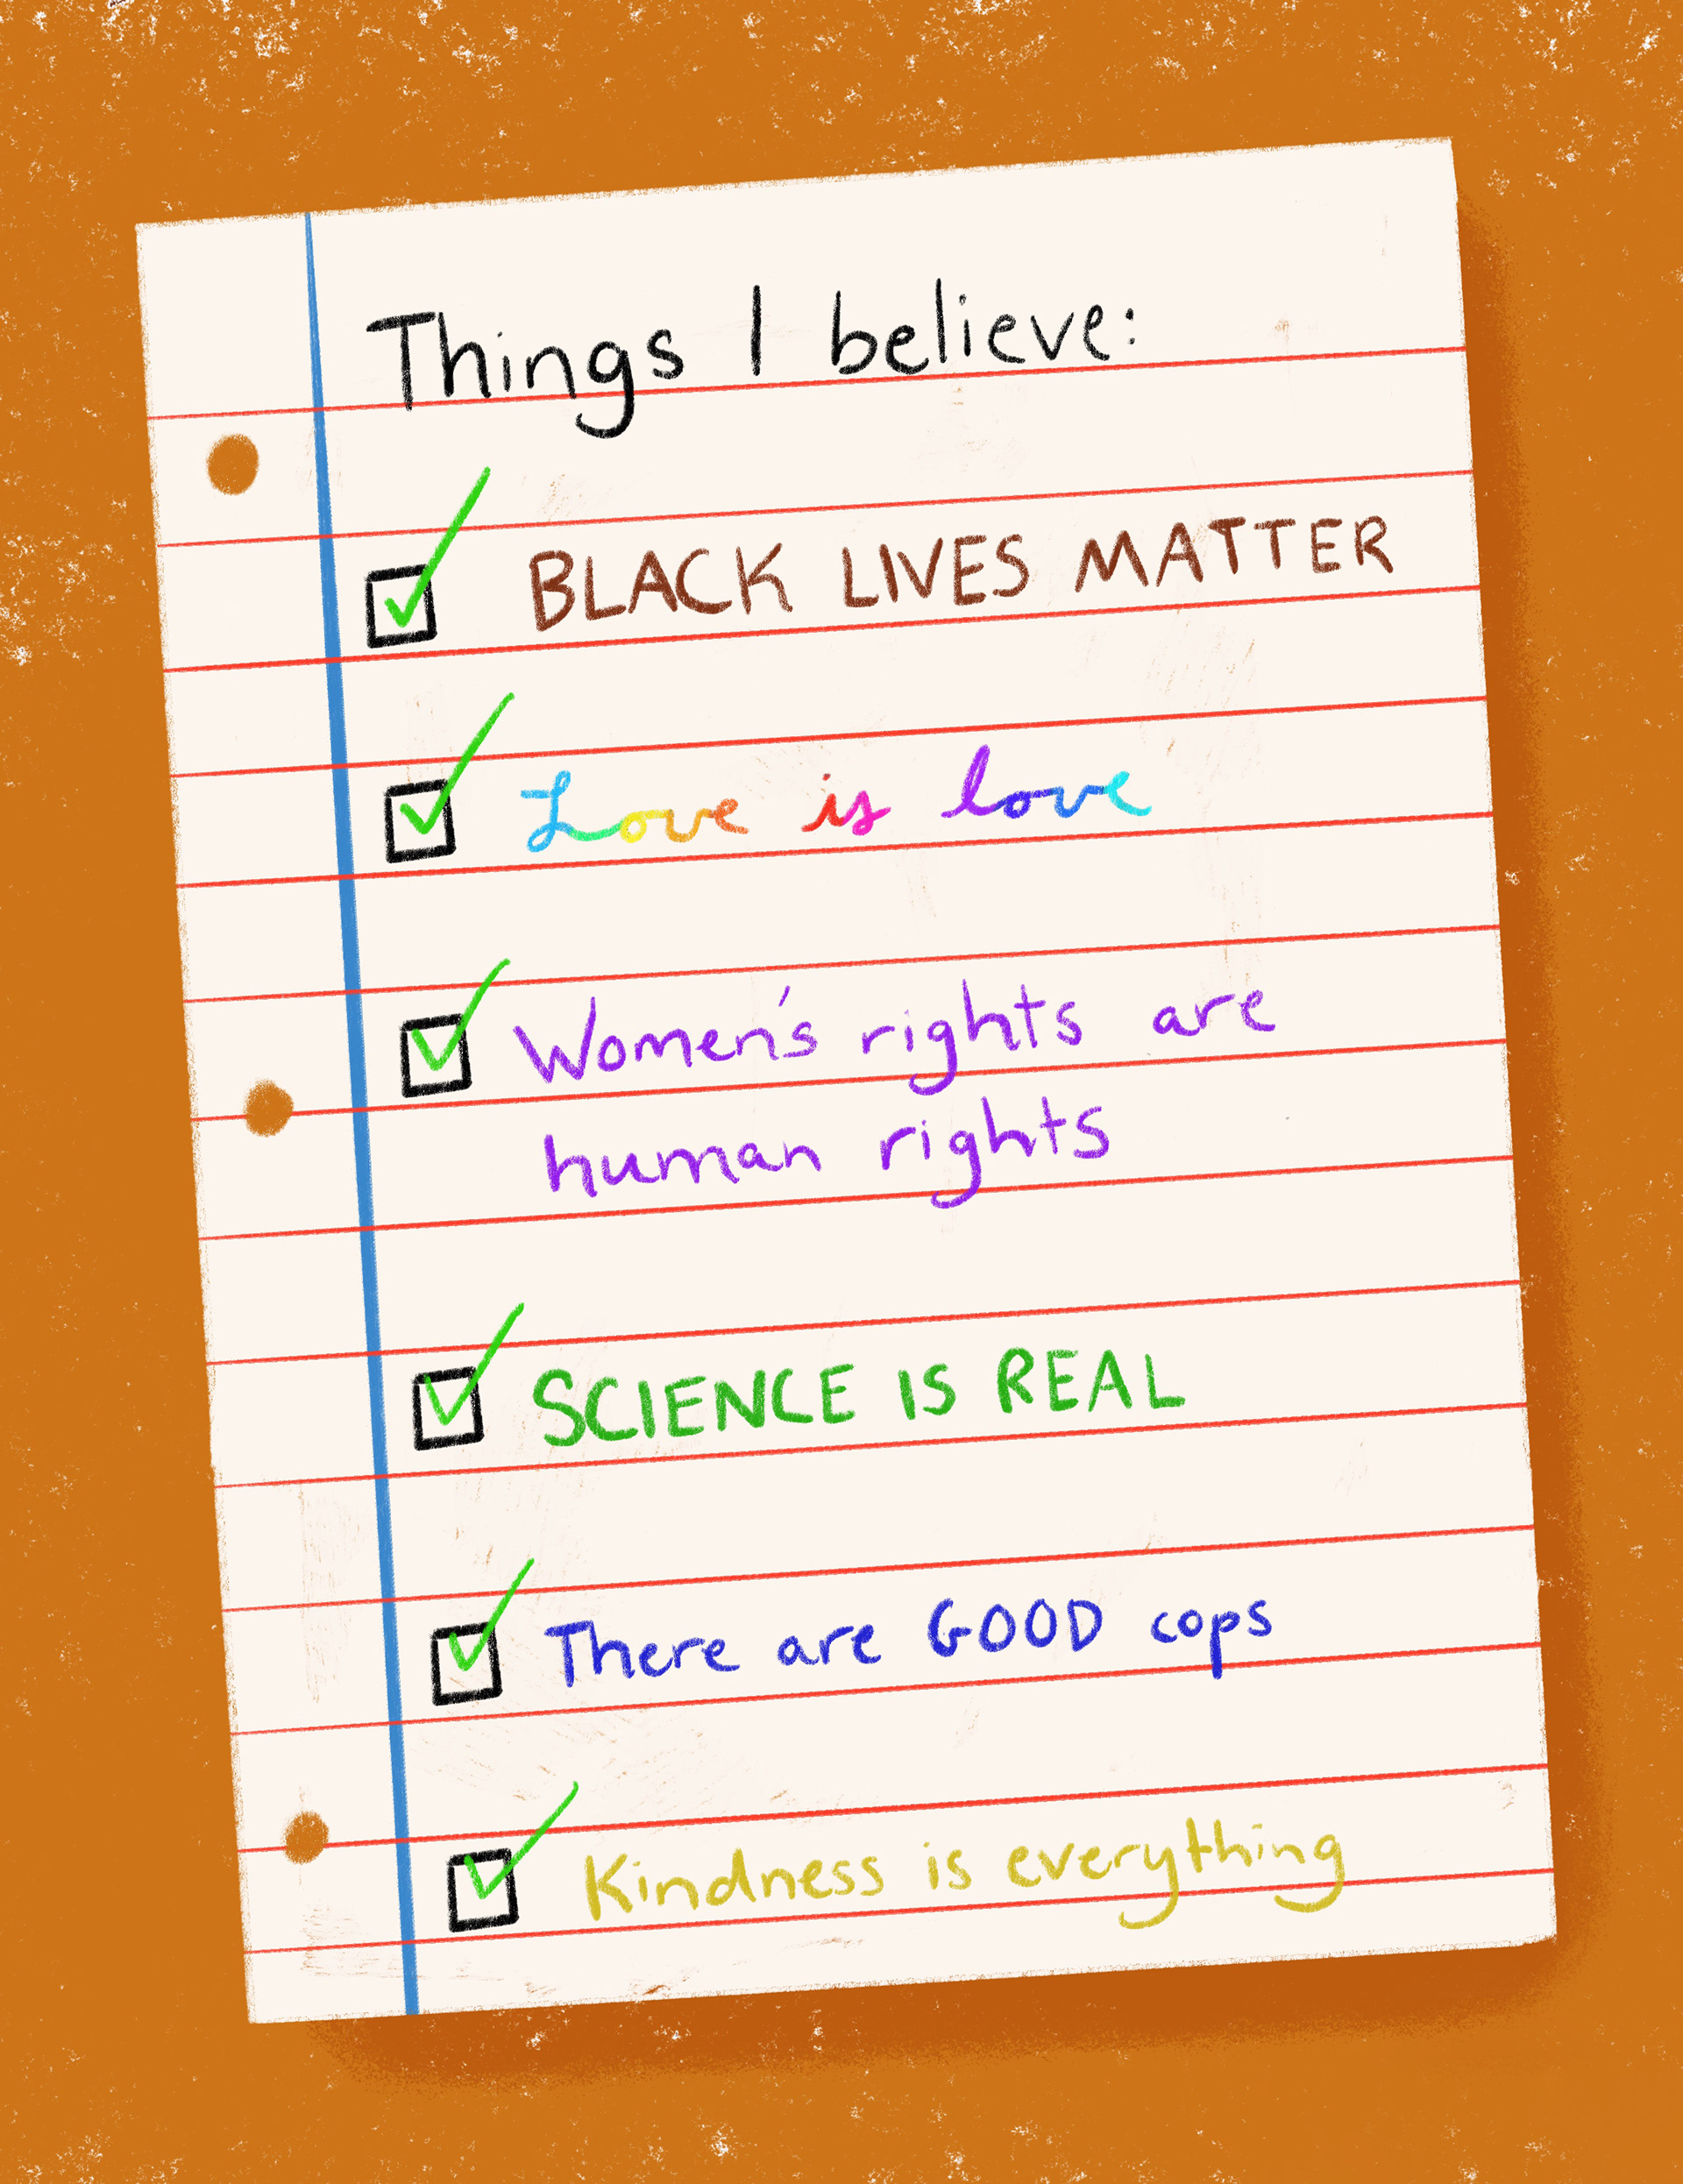 Things I believe:
BLACK LIVES MATTER
Love is love
Women's rights are
human rights
SCIENCE IS REAL
There are GOOD cops
Kindness is everything